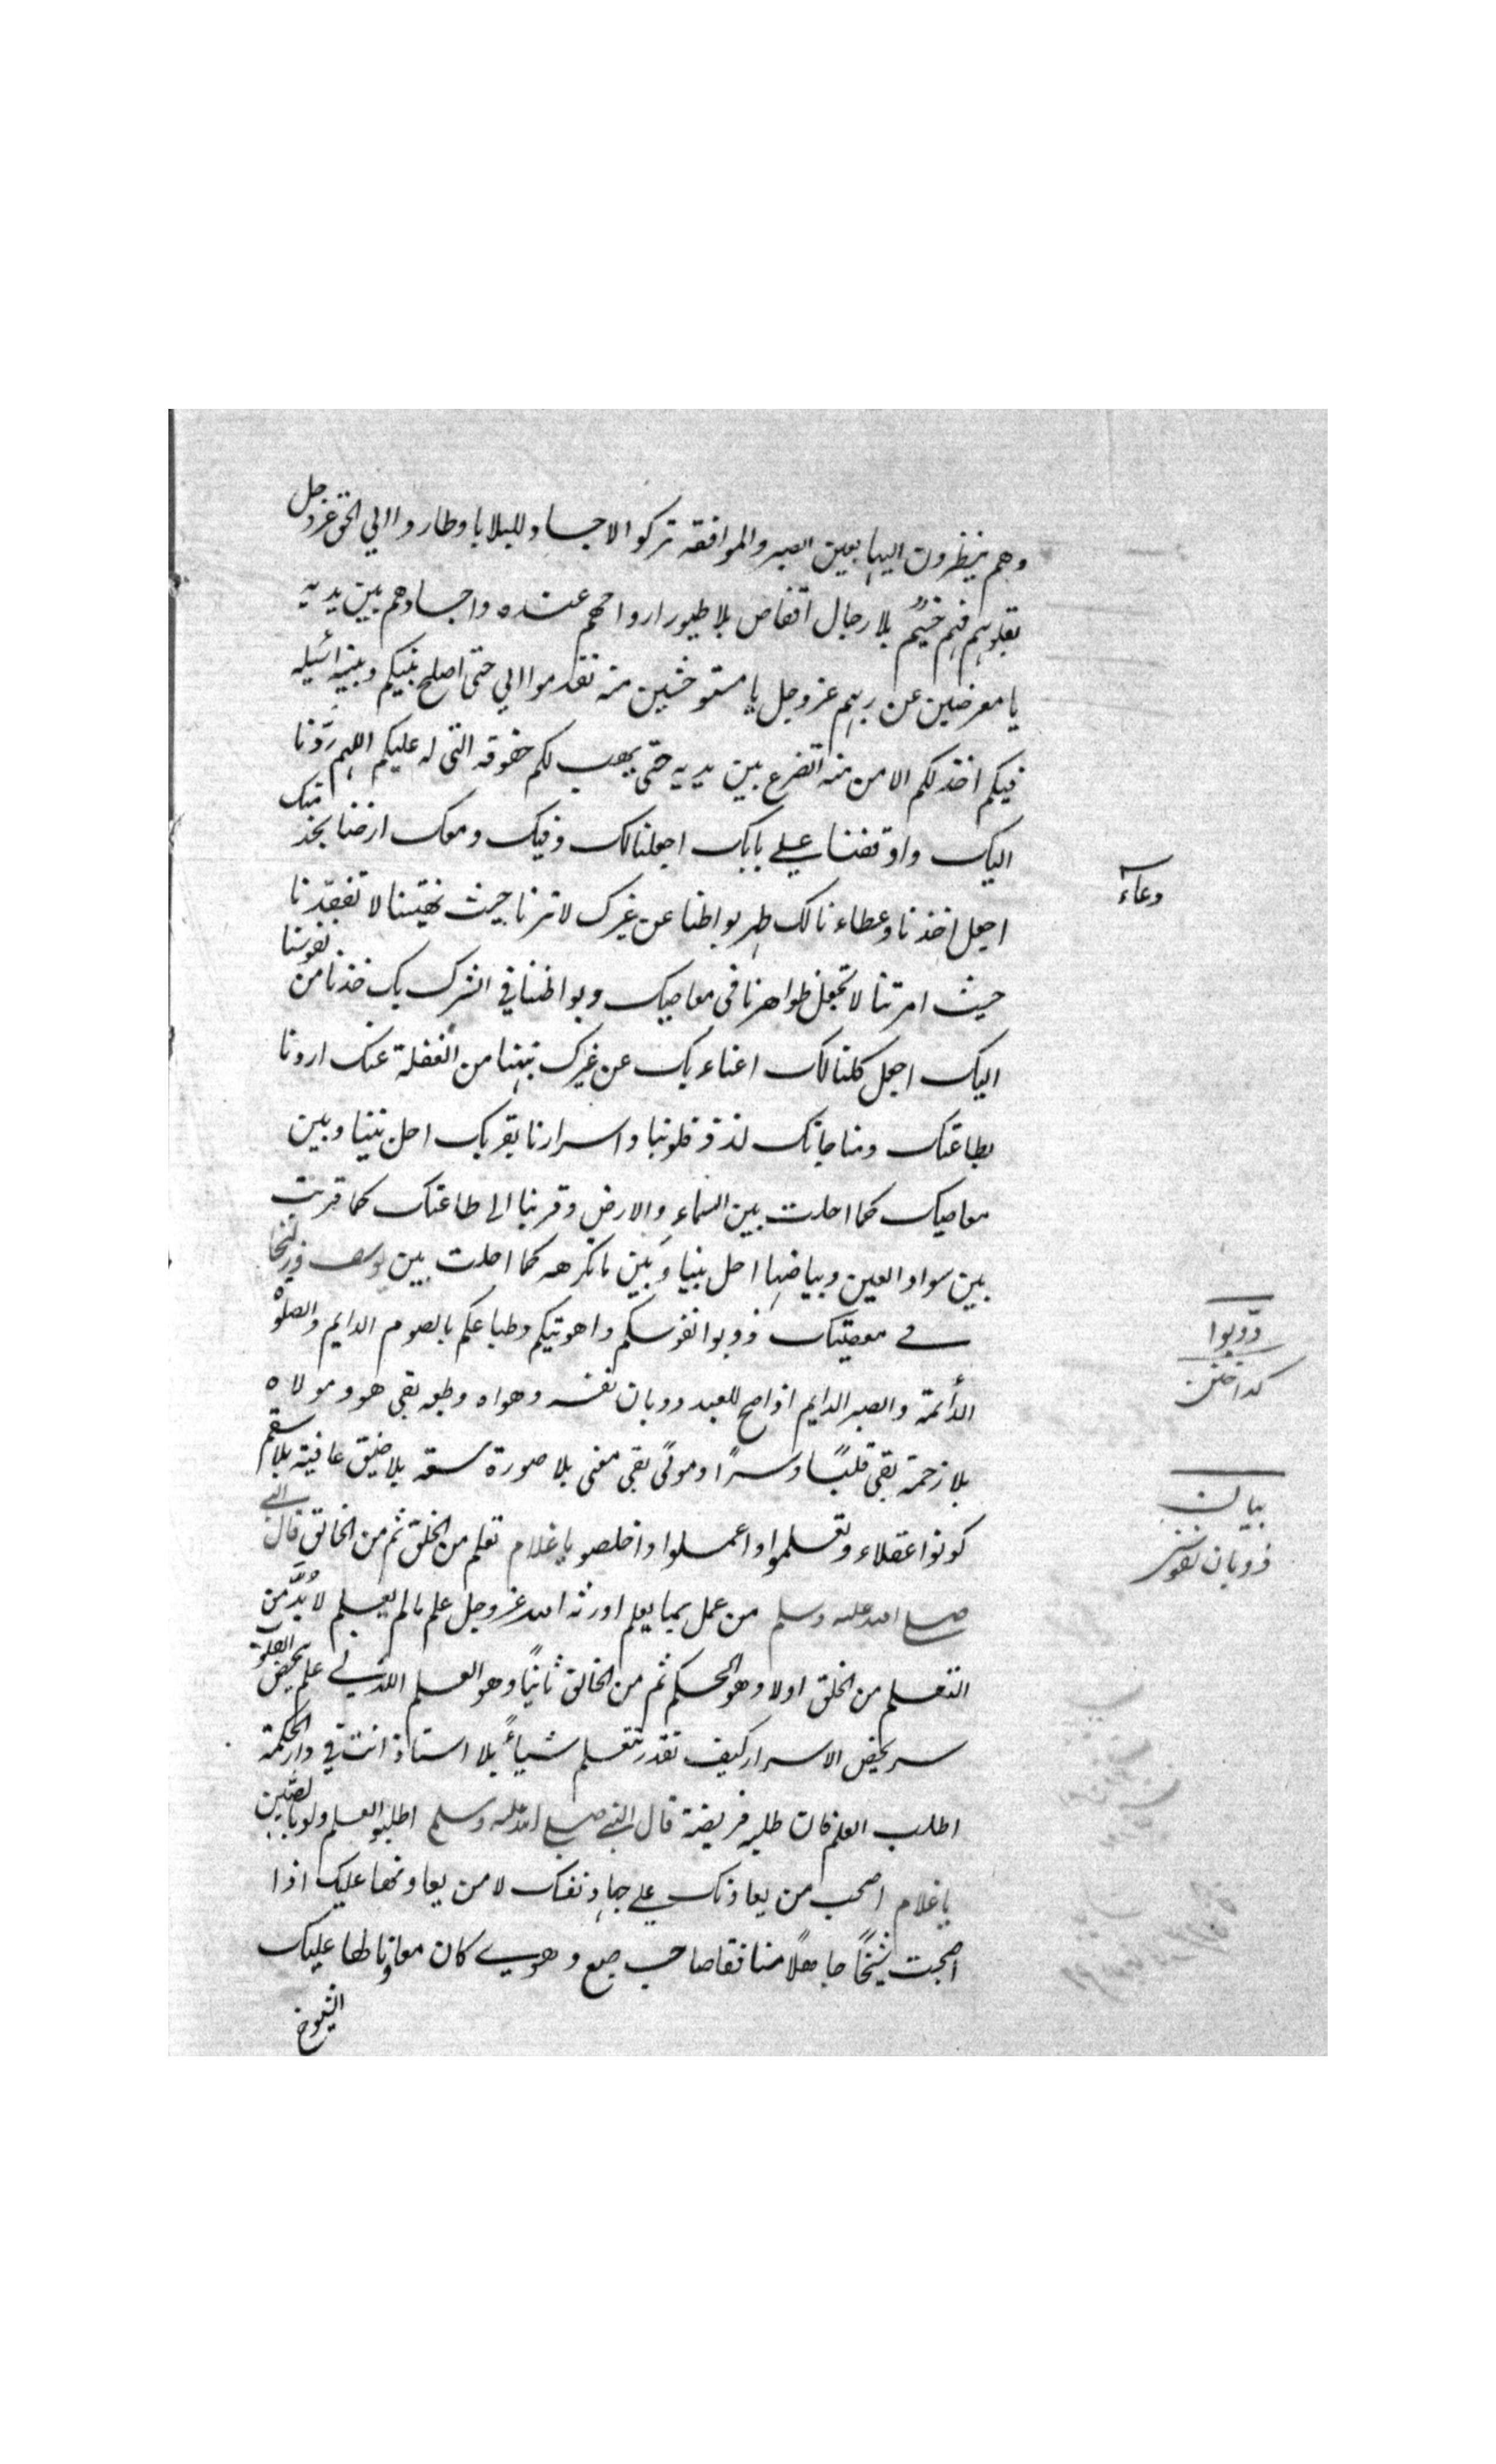 وهم ينظرون اليها بعين الصبر والموافقة تركوا الاجساد للبلايا وطاروا الي الحق عز وجل
بقلوبهم فهم خيم بلا رجال اقفاص بلا طيور ارواحهم عنده واجسادهم بين يديه
يا معرضين عن ربهم عز وجل يا مستوحشين منه تقدموا الي حتى اصلح بينكم وبينه اسئله
فيكم اخذ لكم الامن منه اتضرع بين يديه حتى يهب لكم حقوقه التى له عليكم اللهم ردّنا
اليك واوقفنا علي بابك اجعلنا لك وفيك ومعك ارضنا بخدمتك
دعاء
اجعل اخذنا وعطاءنا لك طهر بواطننا عن غيرك لا ترنا حيث نهيتنا لا تفقدنا
حيث امرتنا لا تجعل ظواهرنا فى معاصيك وبواطننا في الشرك بك خذنا من نفوسنا
اليك اجعل كلنا لك اغناء بك عن غيرك نبهنا من الغفلة عنك اردنا
بطاعتك ومناجاتك لذذ قلوبنا واسرارنا بقربك احل بيننا وبين
معاصيك كما احلت بين السماء والارض وقربنا الى طاعتك كما قربت
بين سواد العين وبياضها احل بيننا وبين ما تكرهه كما احلت بين يوسف وزليخا
في معصيتك ذوبوا نفوسكم واهويتكم وطباعكم بالصوم الدايم والصلوة
ذوّبوا
كداختن
الدأئمة والصبر الدايم اذا صح للعبد ذوبان نفسه وهواه وطبعه بقى هو ومولاه
بلا زحمة بقى قلبًا وسرًا ومولًى بقى معنى بلا صورة سعة بلا ضيق عافية بلا سقم
بيان
ذوبان نفوس
كونوا عقلاء وتعلموا واعملوا واخلصوا يا غلام تعلم من الخلق ثم من الخالق قال النبى
صلى الله عليه وسلم من عمل بما يعلم اورثه الله عز وجل علم ما لم يعلم لا بُدَّ من
التعلم من الخلق اولا وهو الحكم ثم من الخالق ثانيًا وهو العلم اللدني علم يخص القلوب
سر يخص الاسرار كيف تقدر تتعلم شياءً بلا استاذ انت في دار الحكمة
اطلب العلم فان طلبه فريضة قال النبى صلى الله عليه وسلم اطلبوا العلم ولو بالصّين
يا غلام اصحب من يعاونك علي جهاد نفسك لا من يعاونها عليك اذا
اصحبت شيخًا جاهلًا منافقا صاحب طبع وهوي كان معاونا لها عليك
الشيوخ